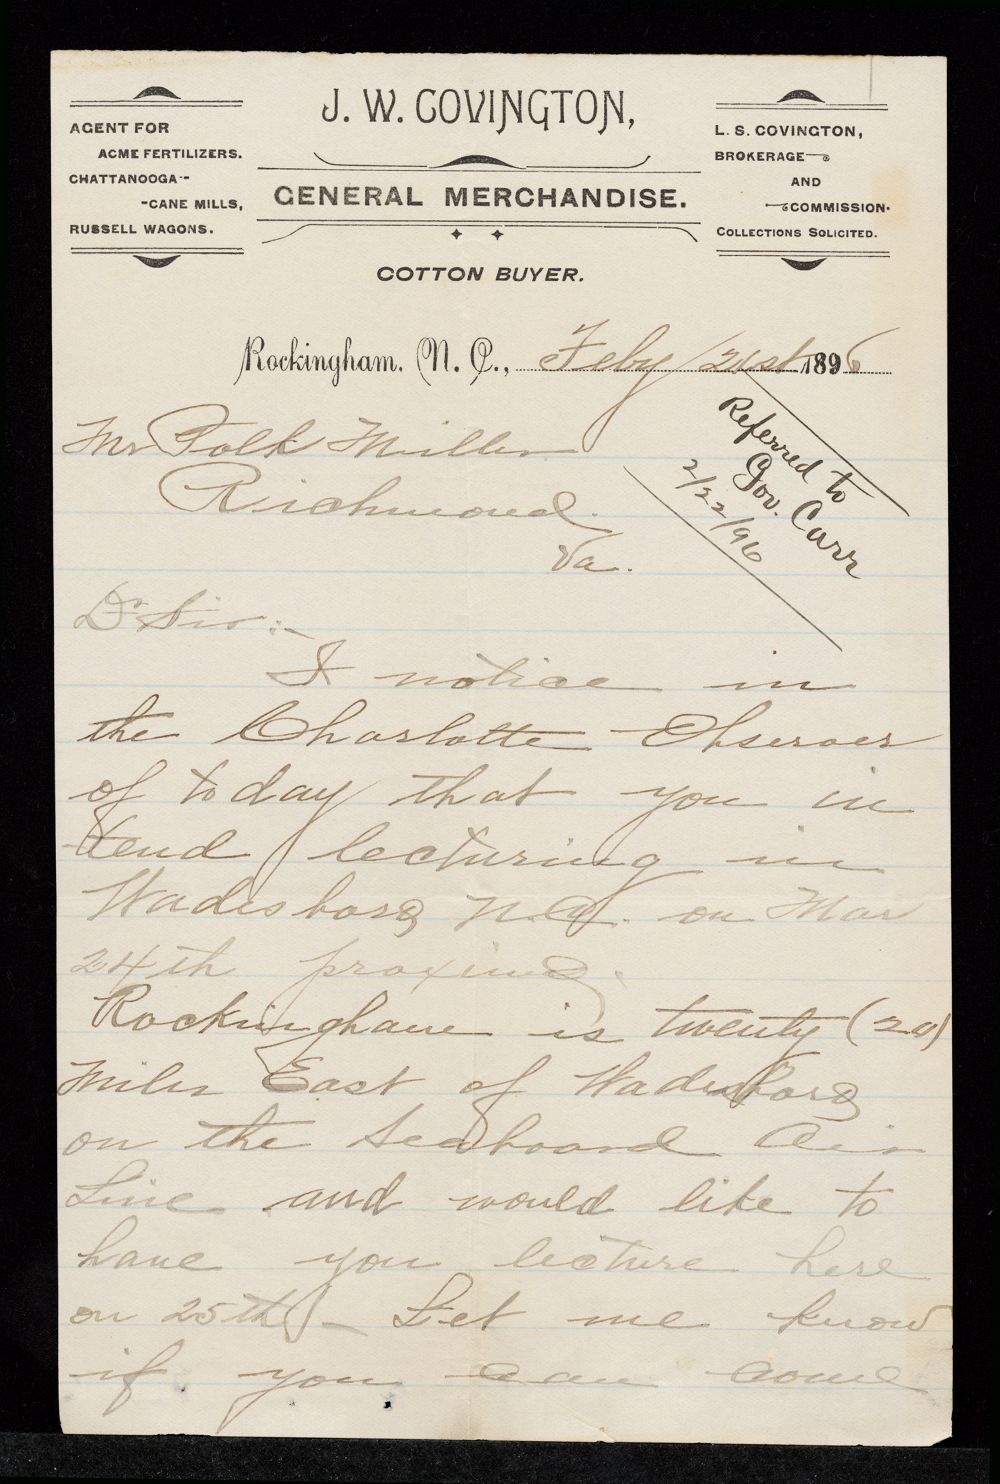 J. W. COVINGTON,
GENERAL MERCHANDISE.
COTTON BUYER.
AGENT FOR
ACME FERTILIZERS.
CHATTANOOGA--
-CANE MILLS,
RUSSELL WAGONS.
L. S. COVINGTON,
BROKERAGE
AND
COMMISSION.
COLLECTIONS SOLICITED.
Rockingham, N. C., Feby 21st 1896
Referred to
Gov. Carr
2/22/96
Mr Polk Miller
Richmond.
Va.
Dr Sir:-
I notice in
the Charlotte Observer
of today that you in
tend lecturing in
Wadesboro N.C. on Mar
24th proximo.
Rockingham is twenty (20)
miles East of Wadesboro
on the Seaboard Air
Line and would like to
have you lecture here
on 25th - Let me know
if you can come